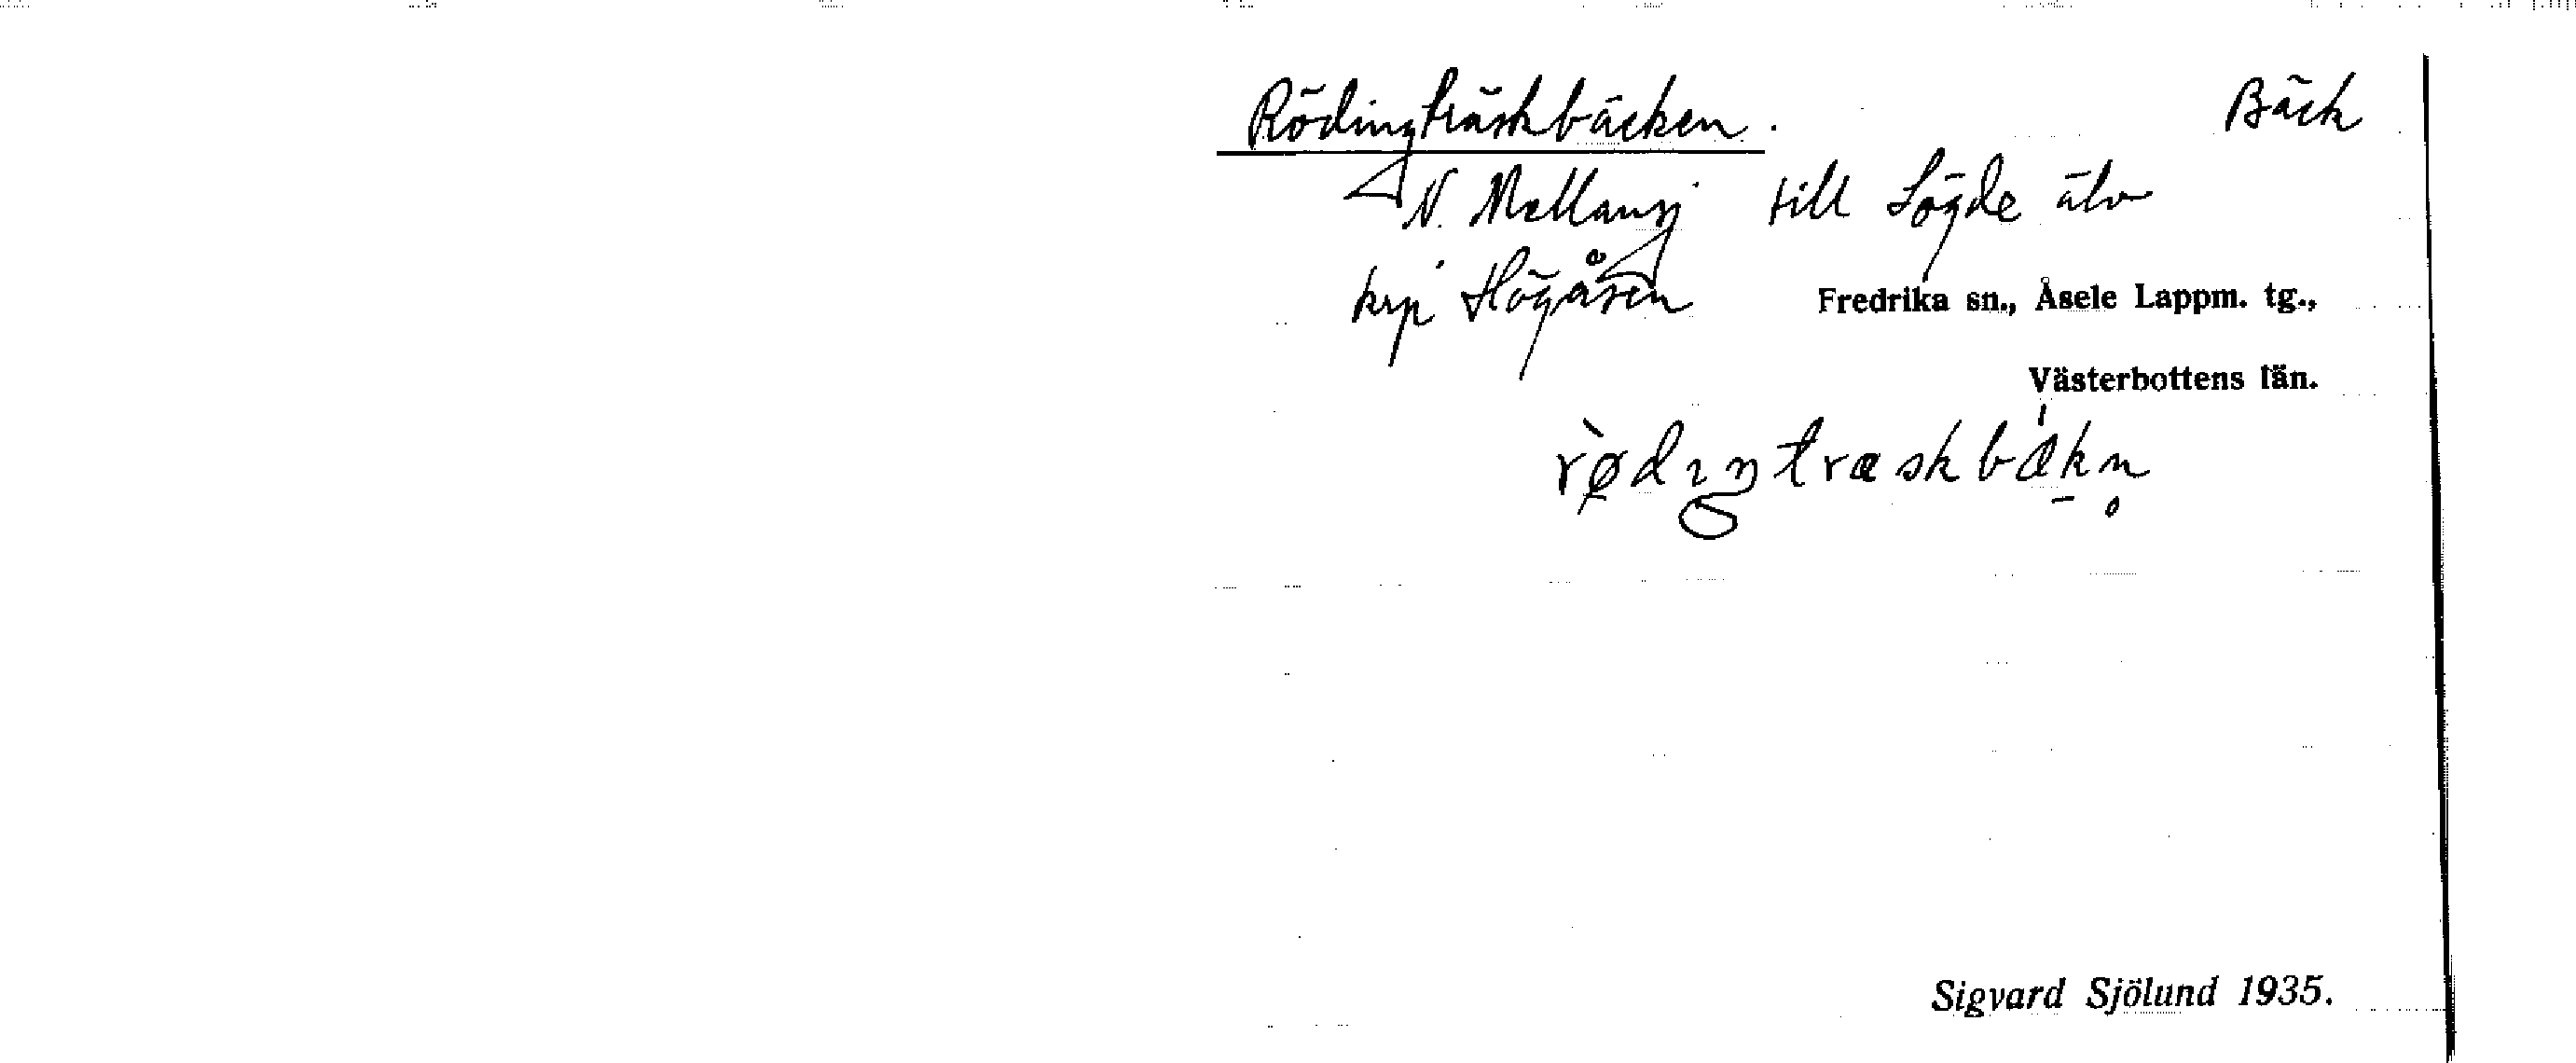 Rödingträskbäcken. Bäck
N. Mellansj till Lögde älv
krp Högåsen Fredrika sn., Åsele Lappm. tg.,
Västerbottens län.
rø̀dıŋtræskbæ̍kn̥
Sigvard Sjölund 1935.